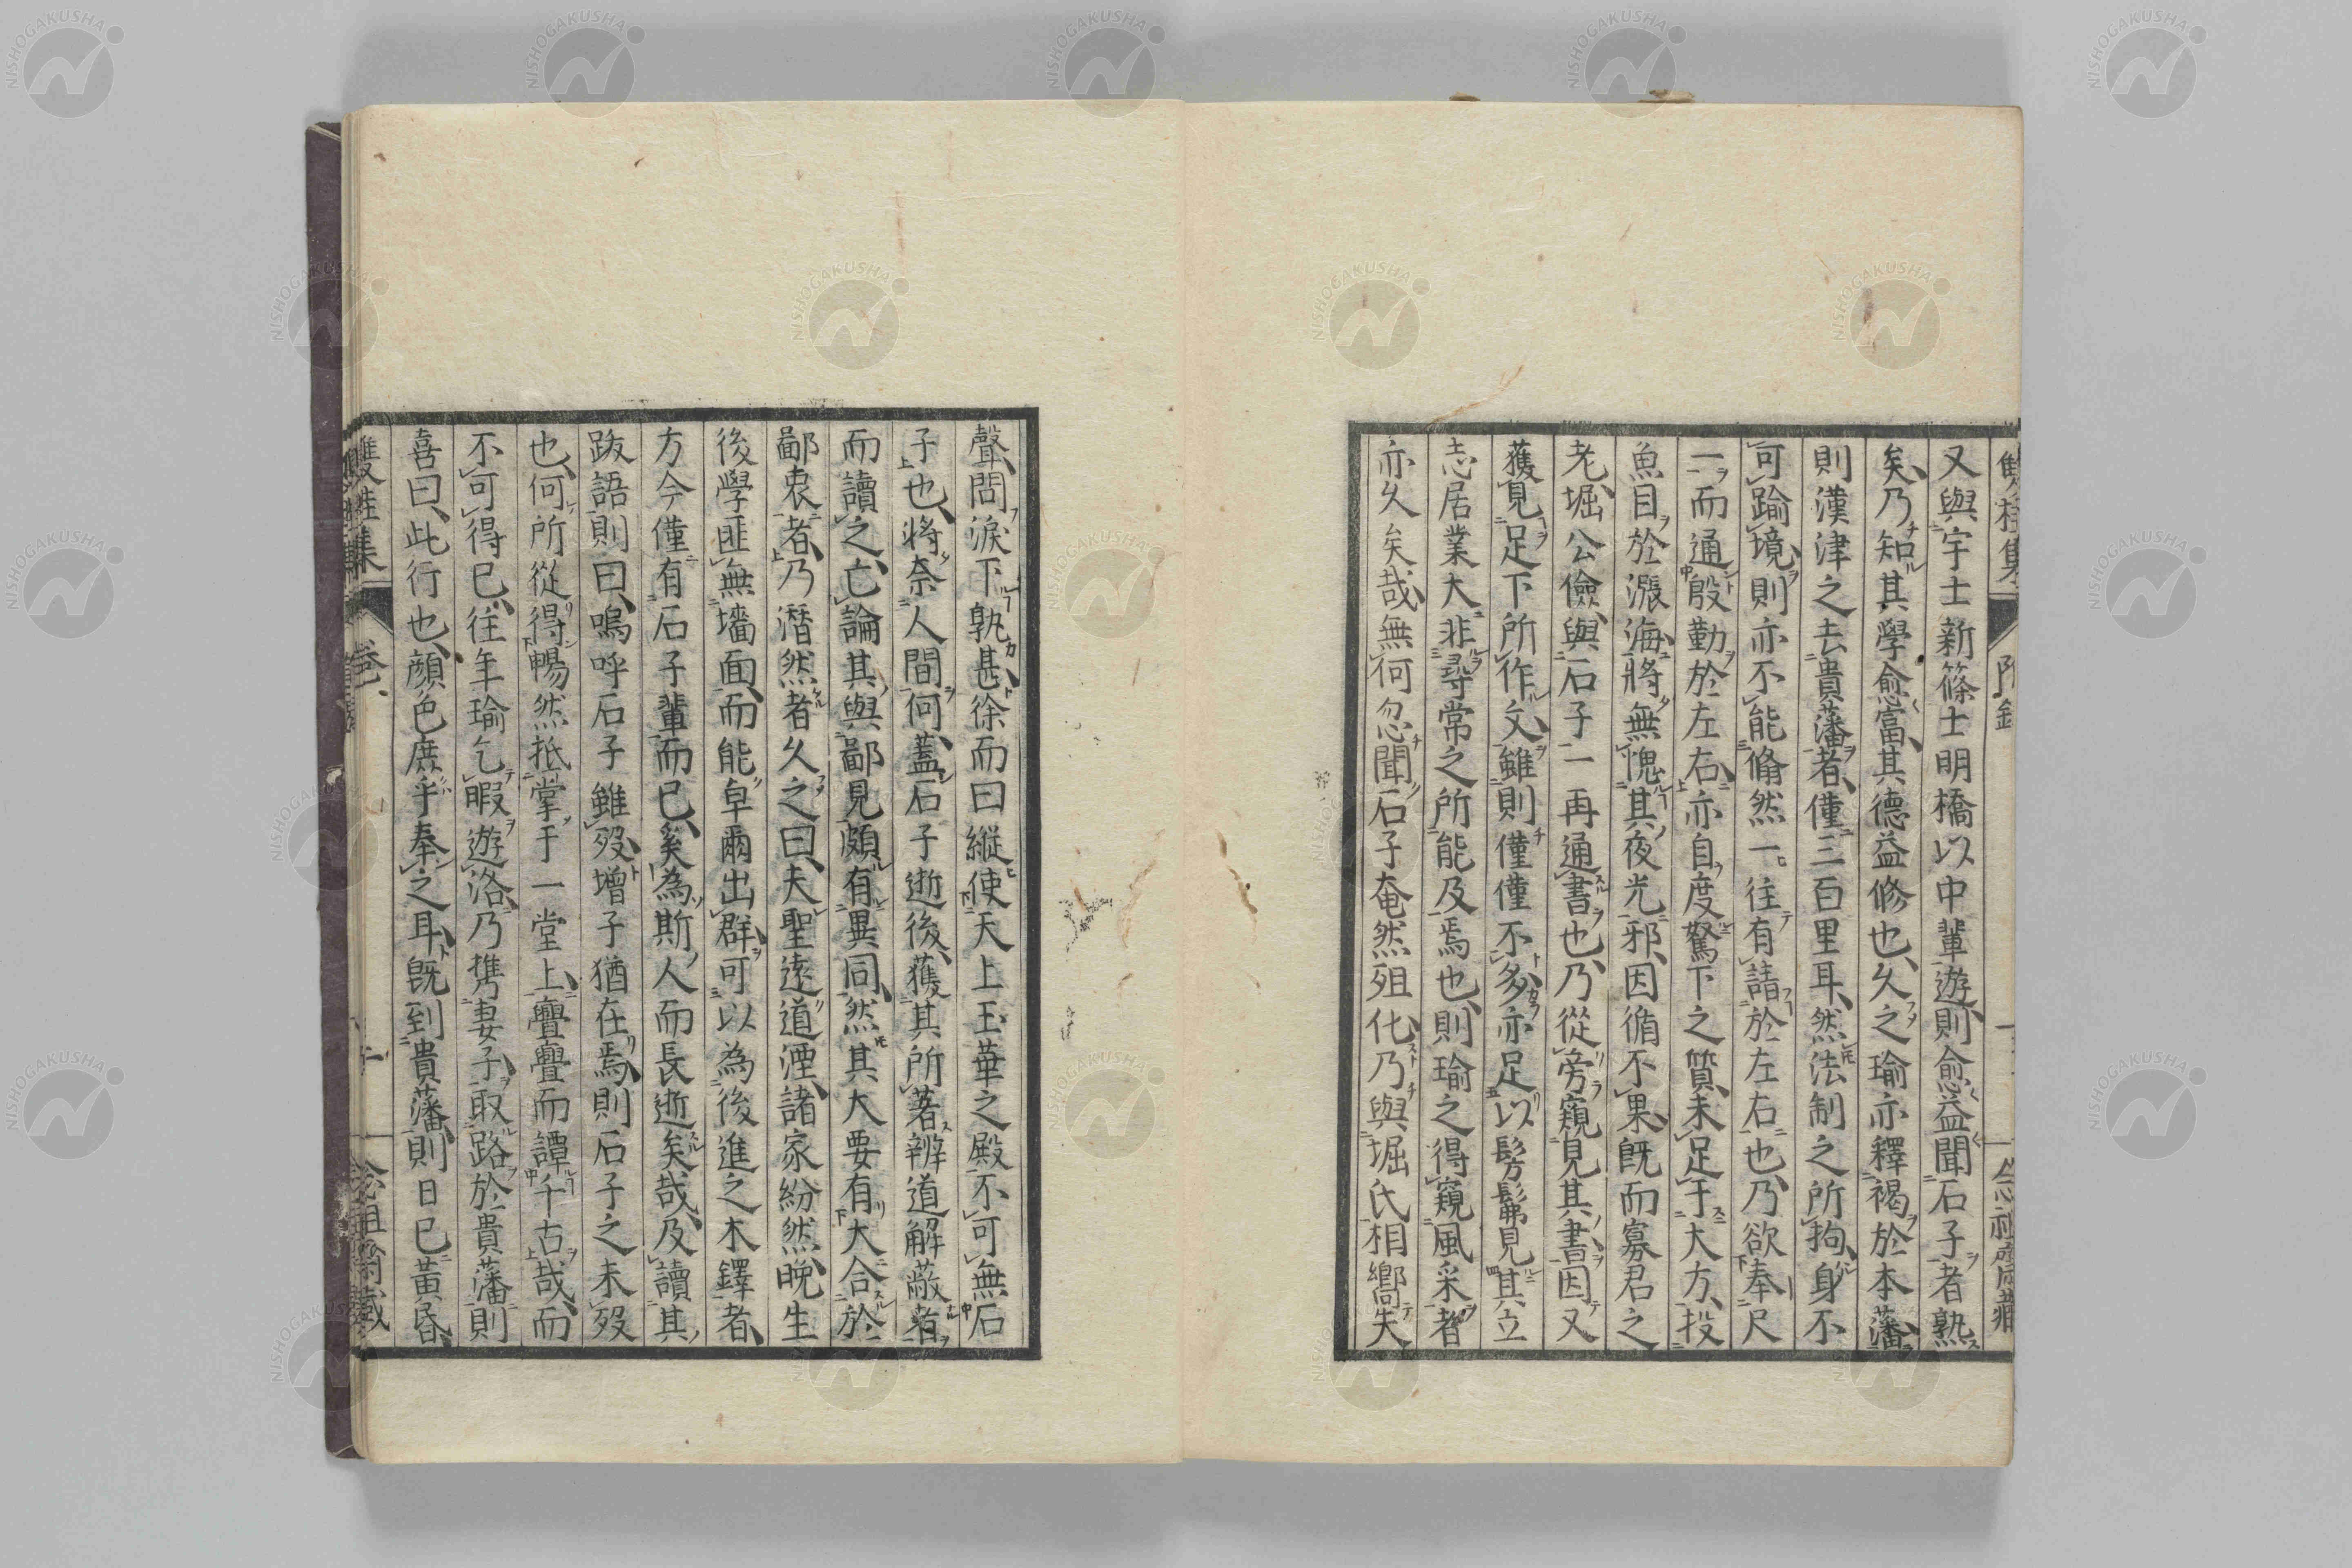 雙桂集 附錄
又與宇士新篠士明橋以中輩遊則愈益聞石子者熟
矣乃知其學愈富其德益修也久之瑜亦釋褐於本藩
則漢津之去貴藩者僅三百里耳然法制之所拘身不
可踰境則亦不能翛然一往有請於左右也乃欲奉尺
一而通殷勤於左右亦自度駑下之質未足于大方投
魚目於漲海將無愧其夜光邪因循不果既而寡君之
老堀公儉與石子一再通書也乃從旁窺見其書因又
獲見足下所作文雖則僅僅不多亦足以髣髴見其立
志居業大非尋常之所能及焉也則瑜之得窺風采者
亦久矣哉無何忽聞石子奄然殂化乃與堀氏相嚮失
聲問淚下孰甚徐而曰縱使天上玉華之殿不可無石
子也將奈人間何蓋石子逝後獲其所著辨道解蔽者
而讀之亡論其與鄙見頗有異同然其大要有大合於
鄙衷者乃潛然者久之曰夫聖遠道湮諸家紛然晚生
後學匪無墻面而能卓爾出群可以為後進之木鐸者
方今僅有石子輩而已奚為斯人而長逝矣哉及讀其
跋語則曰嗚呼石子雖歿增子猶在焉則石子之未歿
也何所從得暢然抵掌于一堂上亹亹而譚千古哉而
不可得已往年瑜乞暇遊洛乃攜妻子取路於貴藩則
喜曰此行也顏色庶乎奉之耳既到貴藩則日已黃昏
雙桂集 卷